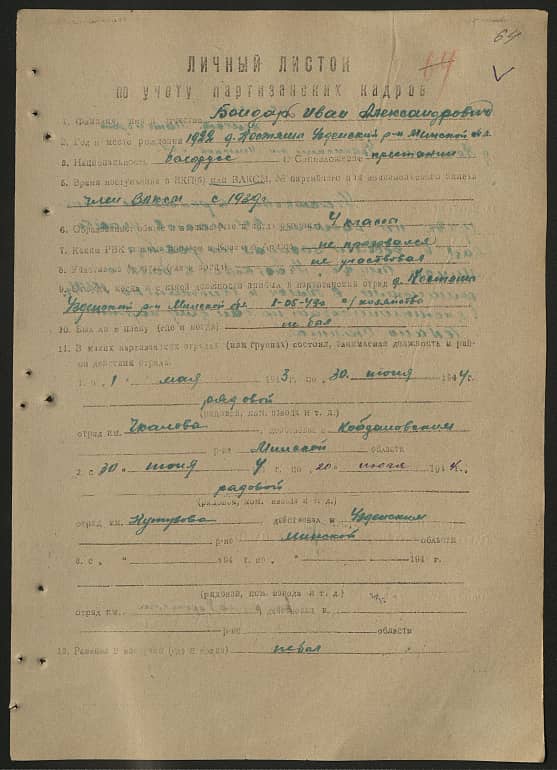 64
14
ЛИЧНЫЙ ЛИСТОК
по учету партизанских кадров
1. Фамилия, имя и отчество Бондарь Иван Александрович
2. Год и место рождения 1922 д. Костеши Узденский р-н Минской обл.
3. Национальность белорус 4. Соцположение крестьянин
5. Время поступления в ВКП(б) или ВЛКСМ, № партийного или комсомольского билета
член ВЛКСМ с 1939г.
6. Образование 4 класса
7. Каким РВК не призывался
8. Участвовал не участвовал
9. Откуда, когда с какой должности прибыл в партизанский отряд д. Костеши
Узденский р-н Минской обл. 1-05-43г.
10. Был ли в плену (где и когда) не был
11. В каких партизанских отрядах (или группах) состоял, занимаемая должность и рай-
он действия отряда.
1. с 1 " мая 1943г. по 30 " июня 1944г.
рядовой
(рядовой, ком. взвода и т. д.)
отряд им. Чкалова действовал в
р-не Минской области
2. с 30 " июня 4 г. по 20 " июля 1944г.
рядовой
(рядовой, ком. взвода и т. д.)
отряд им. Кутузова действовал в Узденским
р-не Минской области
3. с " " 194 г. по " " 194 г.
(рядовой, ком. взвода и т. д.)
отряд им. действовал в
р-не области
12. Ранения и (где и когда) не был